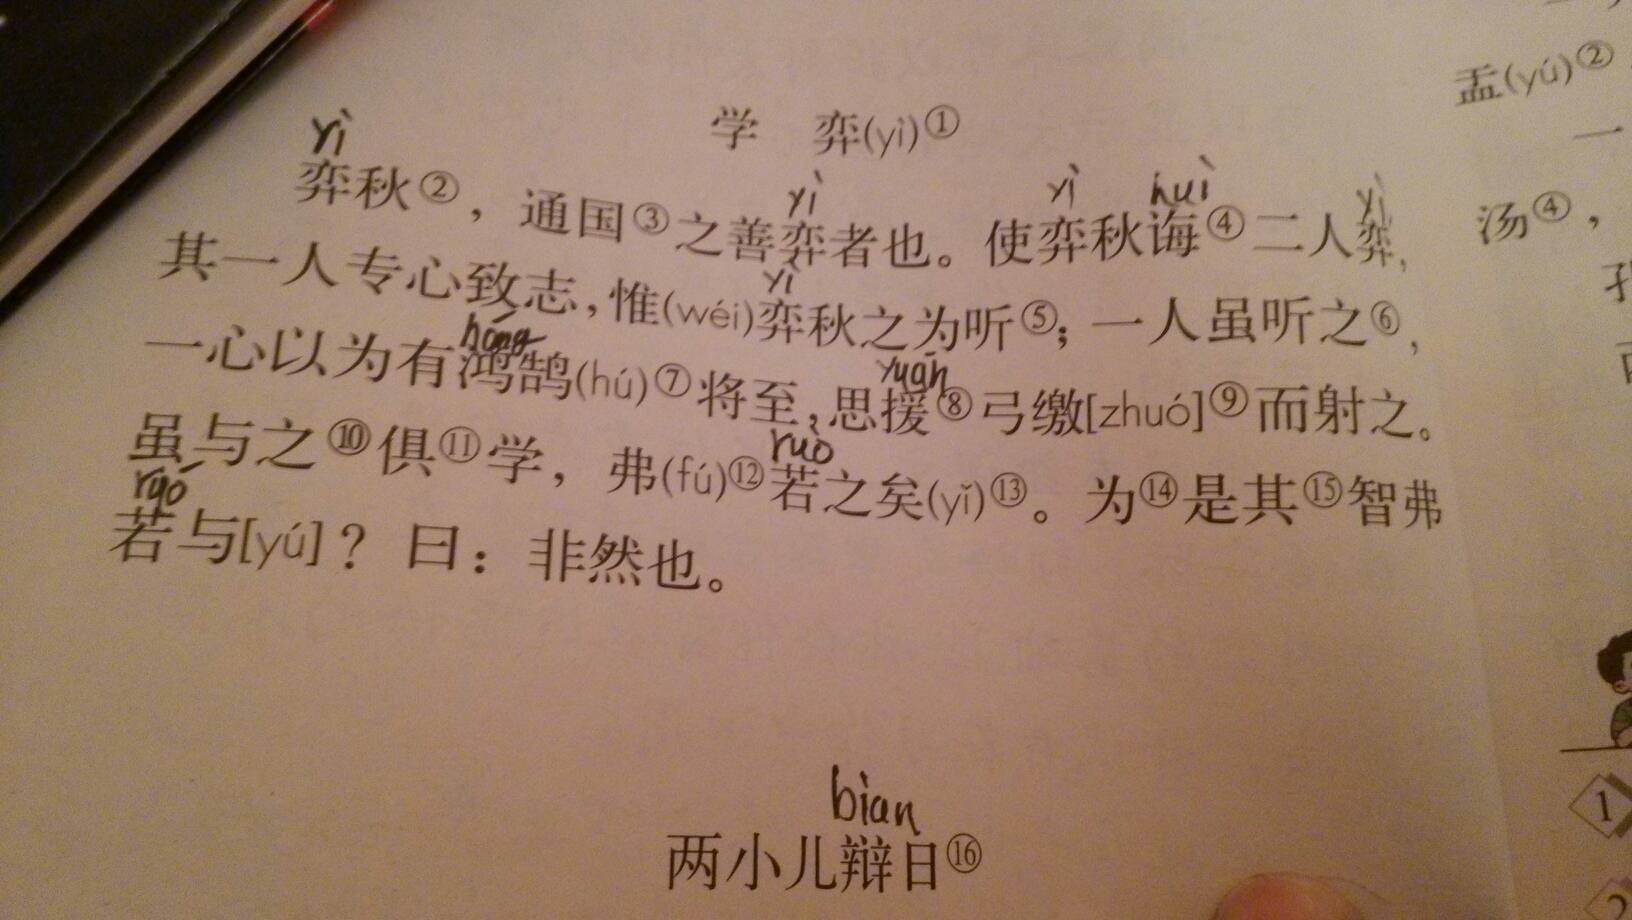 学 弈(yì)①
yì
弈秋②，通国③之善弈者也。使弈秋诲④二人弈，
yì yì huì yì
其一人专心致志，惟(wéi)弈秋之为听⑤；一人虽听之⑥，
yì
一心以为有鸿鹄(hú)⑦将至，思援⑧弓缴[zhuó]⑨而射之。
hóng yuán
虽与之⑩俱⑪学，弗(fú)⑫若之矣(yǐ)⑬。为⑭是其⑮智弗
ruò
若与[yú]？曰：非然也。
bian
两小儿辩日⑯
盂(yú)②
一
汤④，
1
2